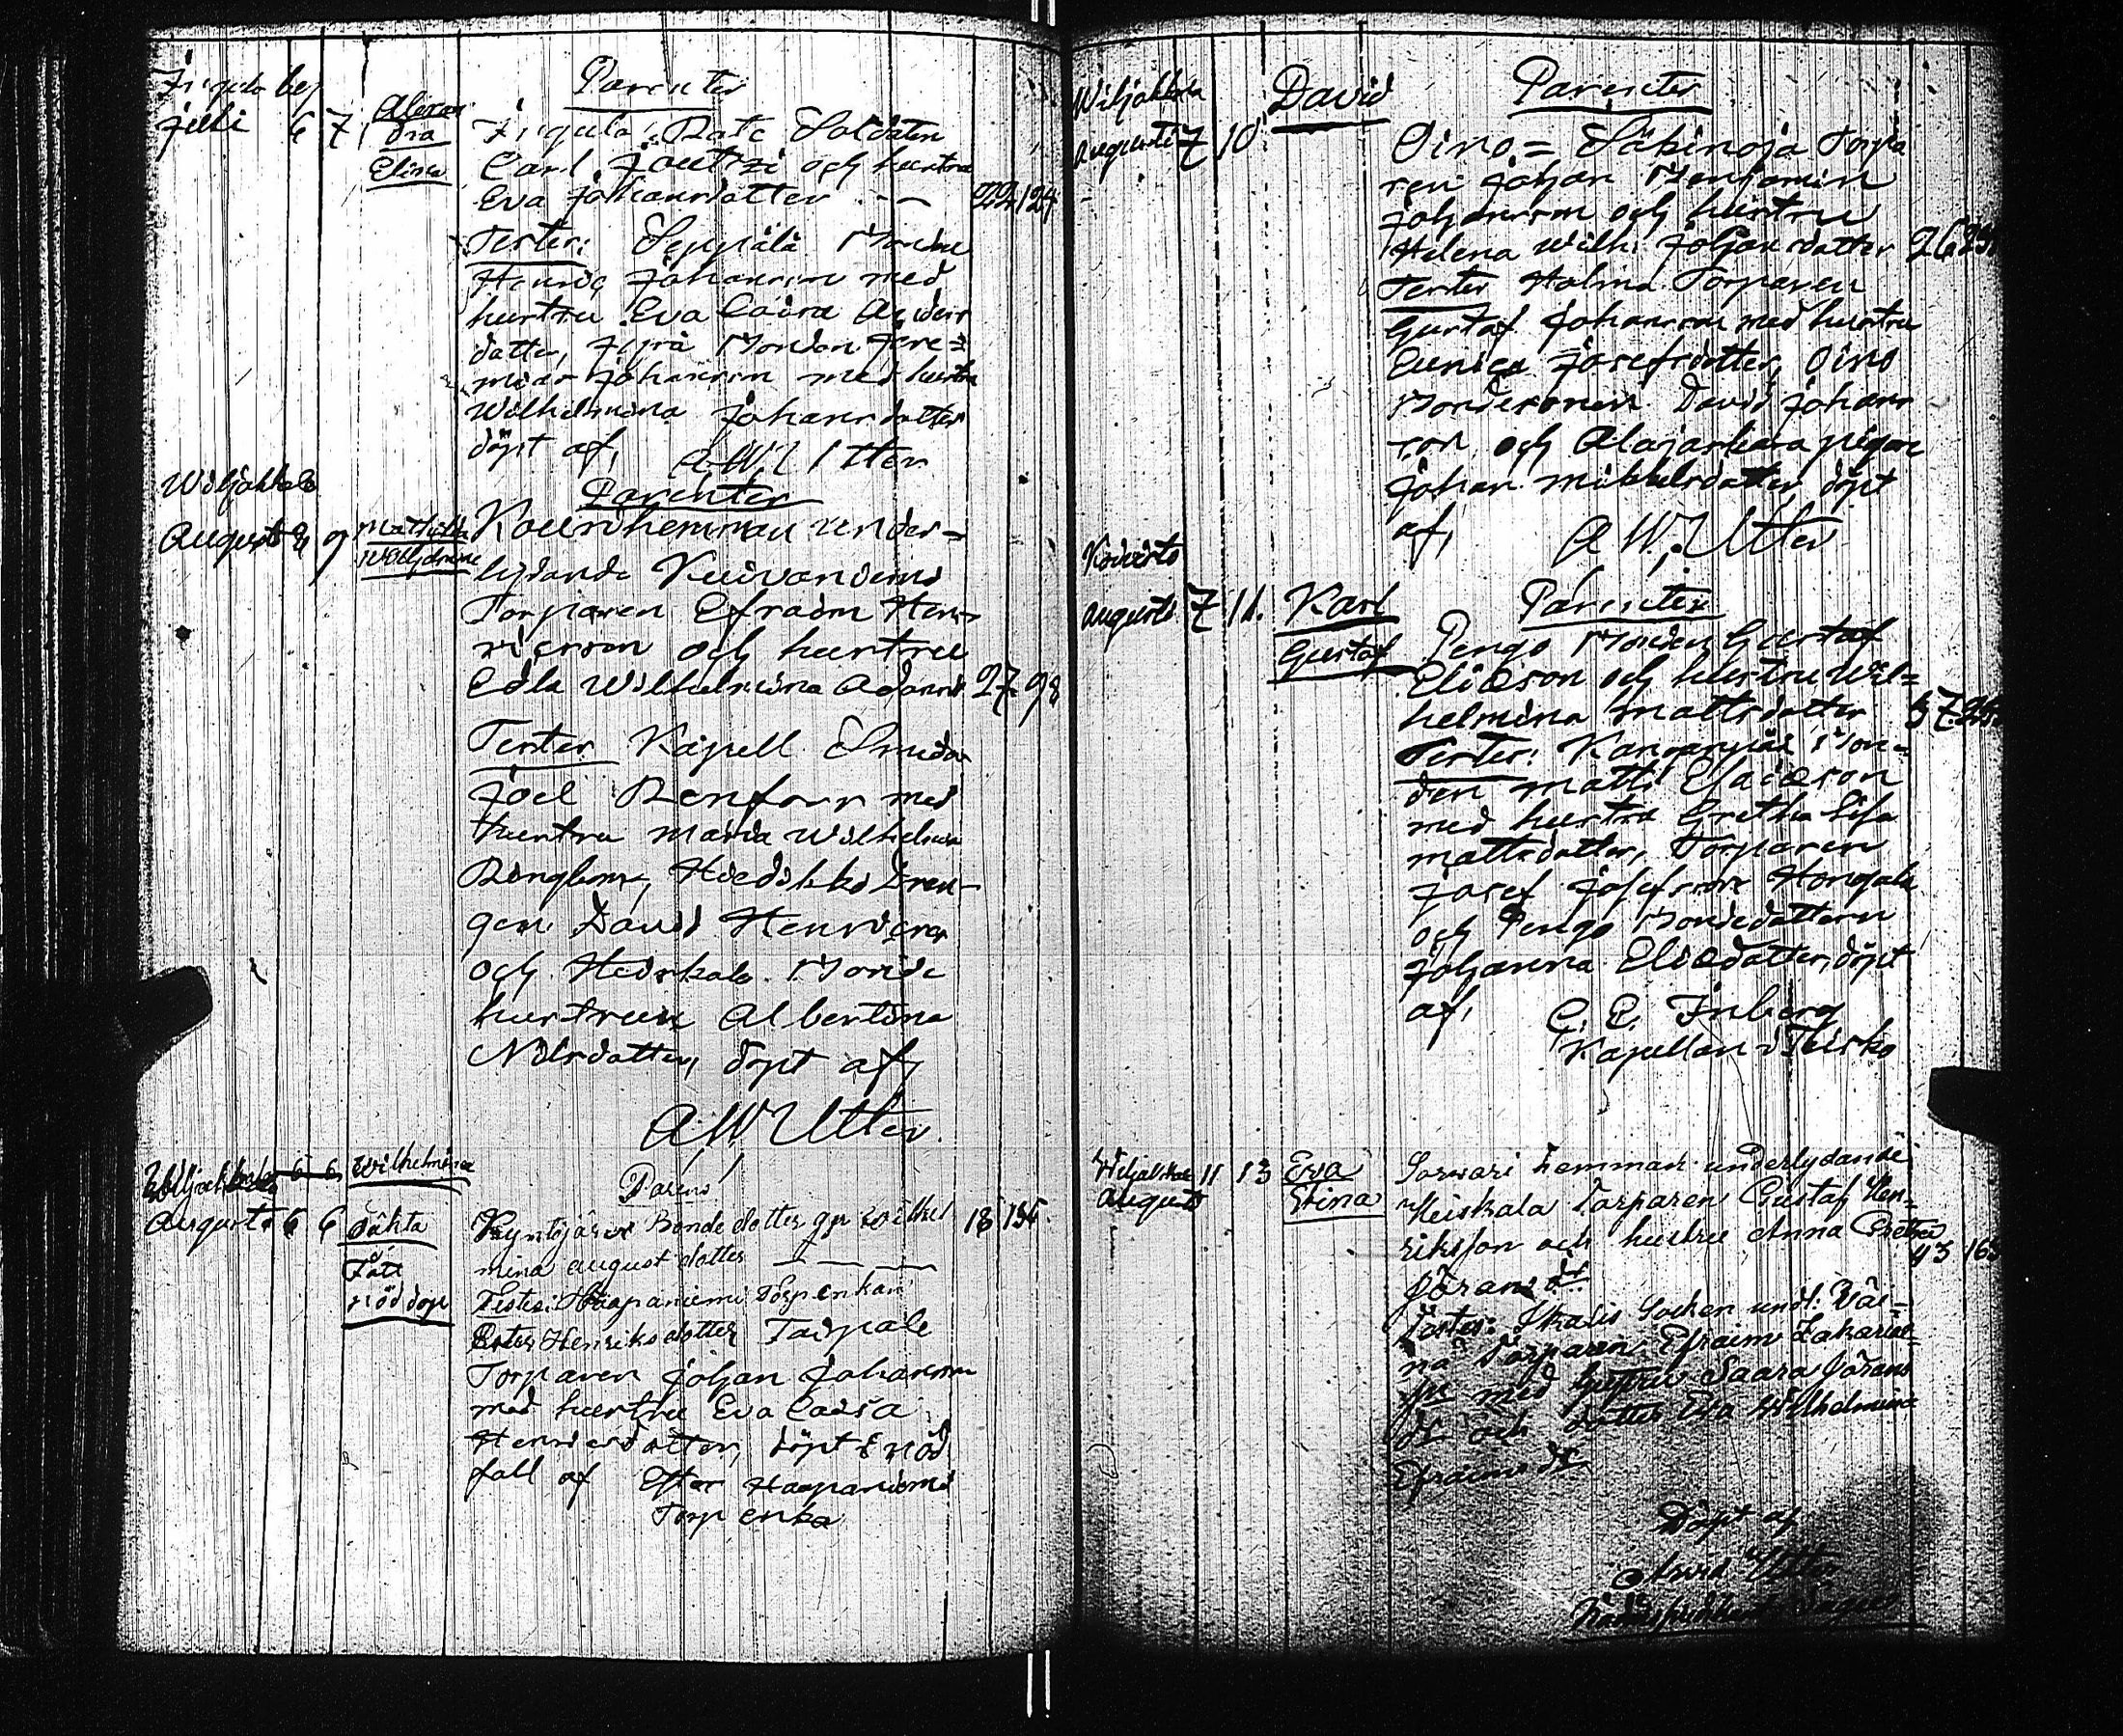 Juli 6 7
Alexan
dra
Elisa
Parenter
Rote Soldaten
Carl och hustru
Eva Johansdotter
22 124
Tester: Seppälä
Johansson med
hustru Eva Caisa Anders
dotter, Jere=
mias Johansson med hustru
Wilhelmina Johansdotter
döpt af, A W Utter
Wiljakkala
Augusti 8 9
Mathilda
Wilhelmina
Parenter
hemman under=
lydande Kuivaniemi
Torparen Efraim Hen=
ricsson och hustru
Edla Wilhelmina Adams 27. 98
Tester Kapell Smeden
Joel Renfors med
hustru Maria Wilhelmina
Ringbom, Hiedikko Dren=
gen David Henricsson
och Heiskala Bonde
hustrun Albertina
Nilsdotter, döpt af,
A W Utter
Wiljakkala 6 6 Wilhelmina
Augusti 6 6
oäkta
Fått
nöddop
Parens
Kyntöjärvi Bonde dotter Wilhel 18 154
mina august dotter
Testes: Haapaniemi Torp enkan
Ester Henriksdotter Taipale
Torparen Johan Johansson
med hustru Eva Caisa
Henricsdotter, döpt i nöd
fall af Ester Haapaniemi
Torp enka
Wiljakkala
Augusti 7 10
David
Parenter
Oino= Torpa
ren Johan Benjamin
Johansson och hustru
Helena Wilh. Johansdotter 26
Tester Holma Torparen
Gustaf Johansson med hustru
Eunica Josefsdotter, Oino
Bondesonen David Johans
son och pigan
Johan. Mikkelsdotter döpt
af, A W. Utter
Koivisto
Augusti 7 11.
Karl
Gustaf
Parenter
Pengo Bonden Gustaf
Eliasson och hustru Wil=
helmina Mattsdotter 37.
Tester: Bon=
den Matts Esaiasson
med hustru Gretha Lisa
Mattsdotter, Torparen
Josef Josefsson Hongola
och Pengo Bondedottern
Johanna Eliedotter, döpt
af, G. E. Inberg
Kapellan i Kisko
Wiljakkala 11 13
Augusti
Eva
Stina
Sarvari hemman underlydande
Heiskala Torparen Gustaf Hen=
riksson och hustru Anna Greta
43 163
Göransdt
Testes: Ikalis Socken undl. Väi=
nä Torparen Efraim Zakarias=
son med hustru Saara Görans
dr och dotter Eva Wilhelmina
Efraimsdr
Döpt af
Arvid Utter